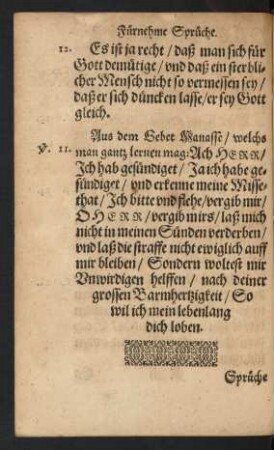 Fürnehme Sprüche.
12. Es ist ja recht / daß man sich für
Gott demütige / vnd daß ein sterb
licher Mensch nicht so vermessen sey /
daß er sich düncken lasse / er sey Gott
gleich.
Aus dem Gebet Manasse / welchs
v. 11. man gantz lernen mag: Ach HERR /
Jch hab gesündiget / Ja ich habe ge-
sündiget / vnd erkenne meine Misse-
that / Jch bitte vnd flehe / vergib mir /
O HERR / vergib mirs / laß mich
nicht in meinen Sünden verderben /
vnd laß die straffe nicht ewiglich auff
mir bleiben / Sondern woltest mir
Vnwirdigen helffen / nach deiner
grossen Barmhertzigkeit / So
wil ich mein lebenlang
dich loben.
Sprüche